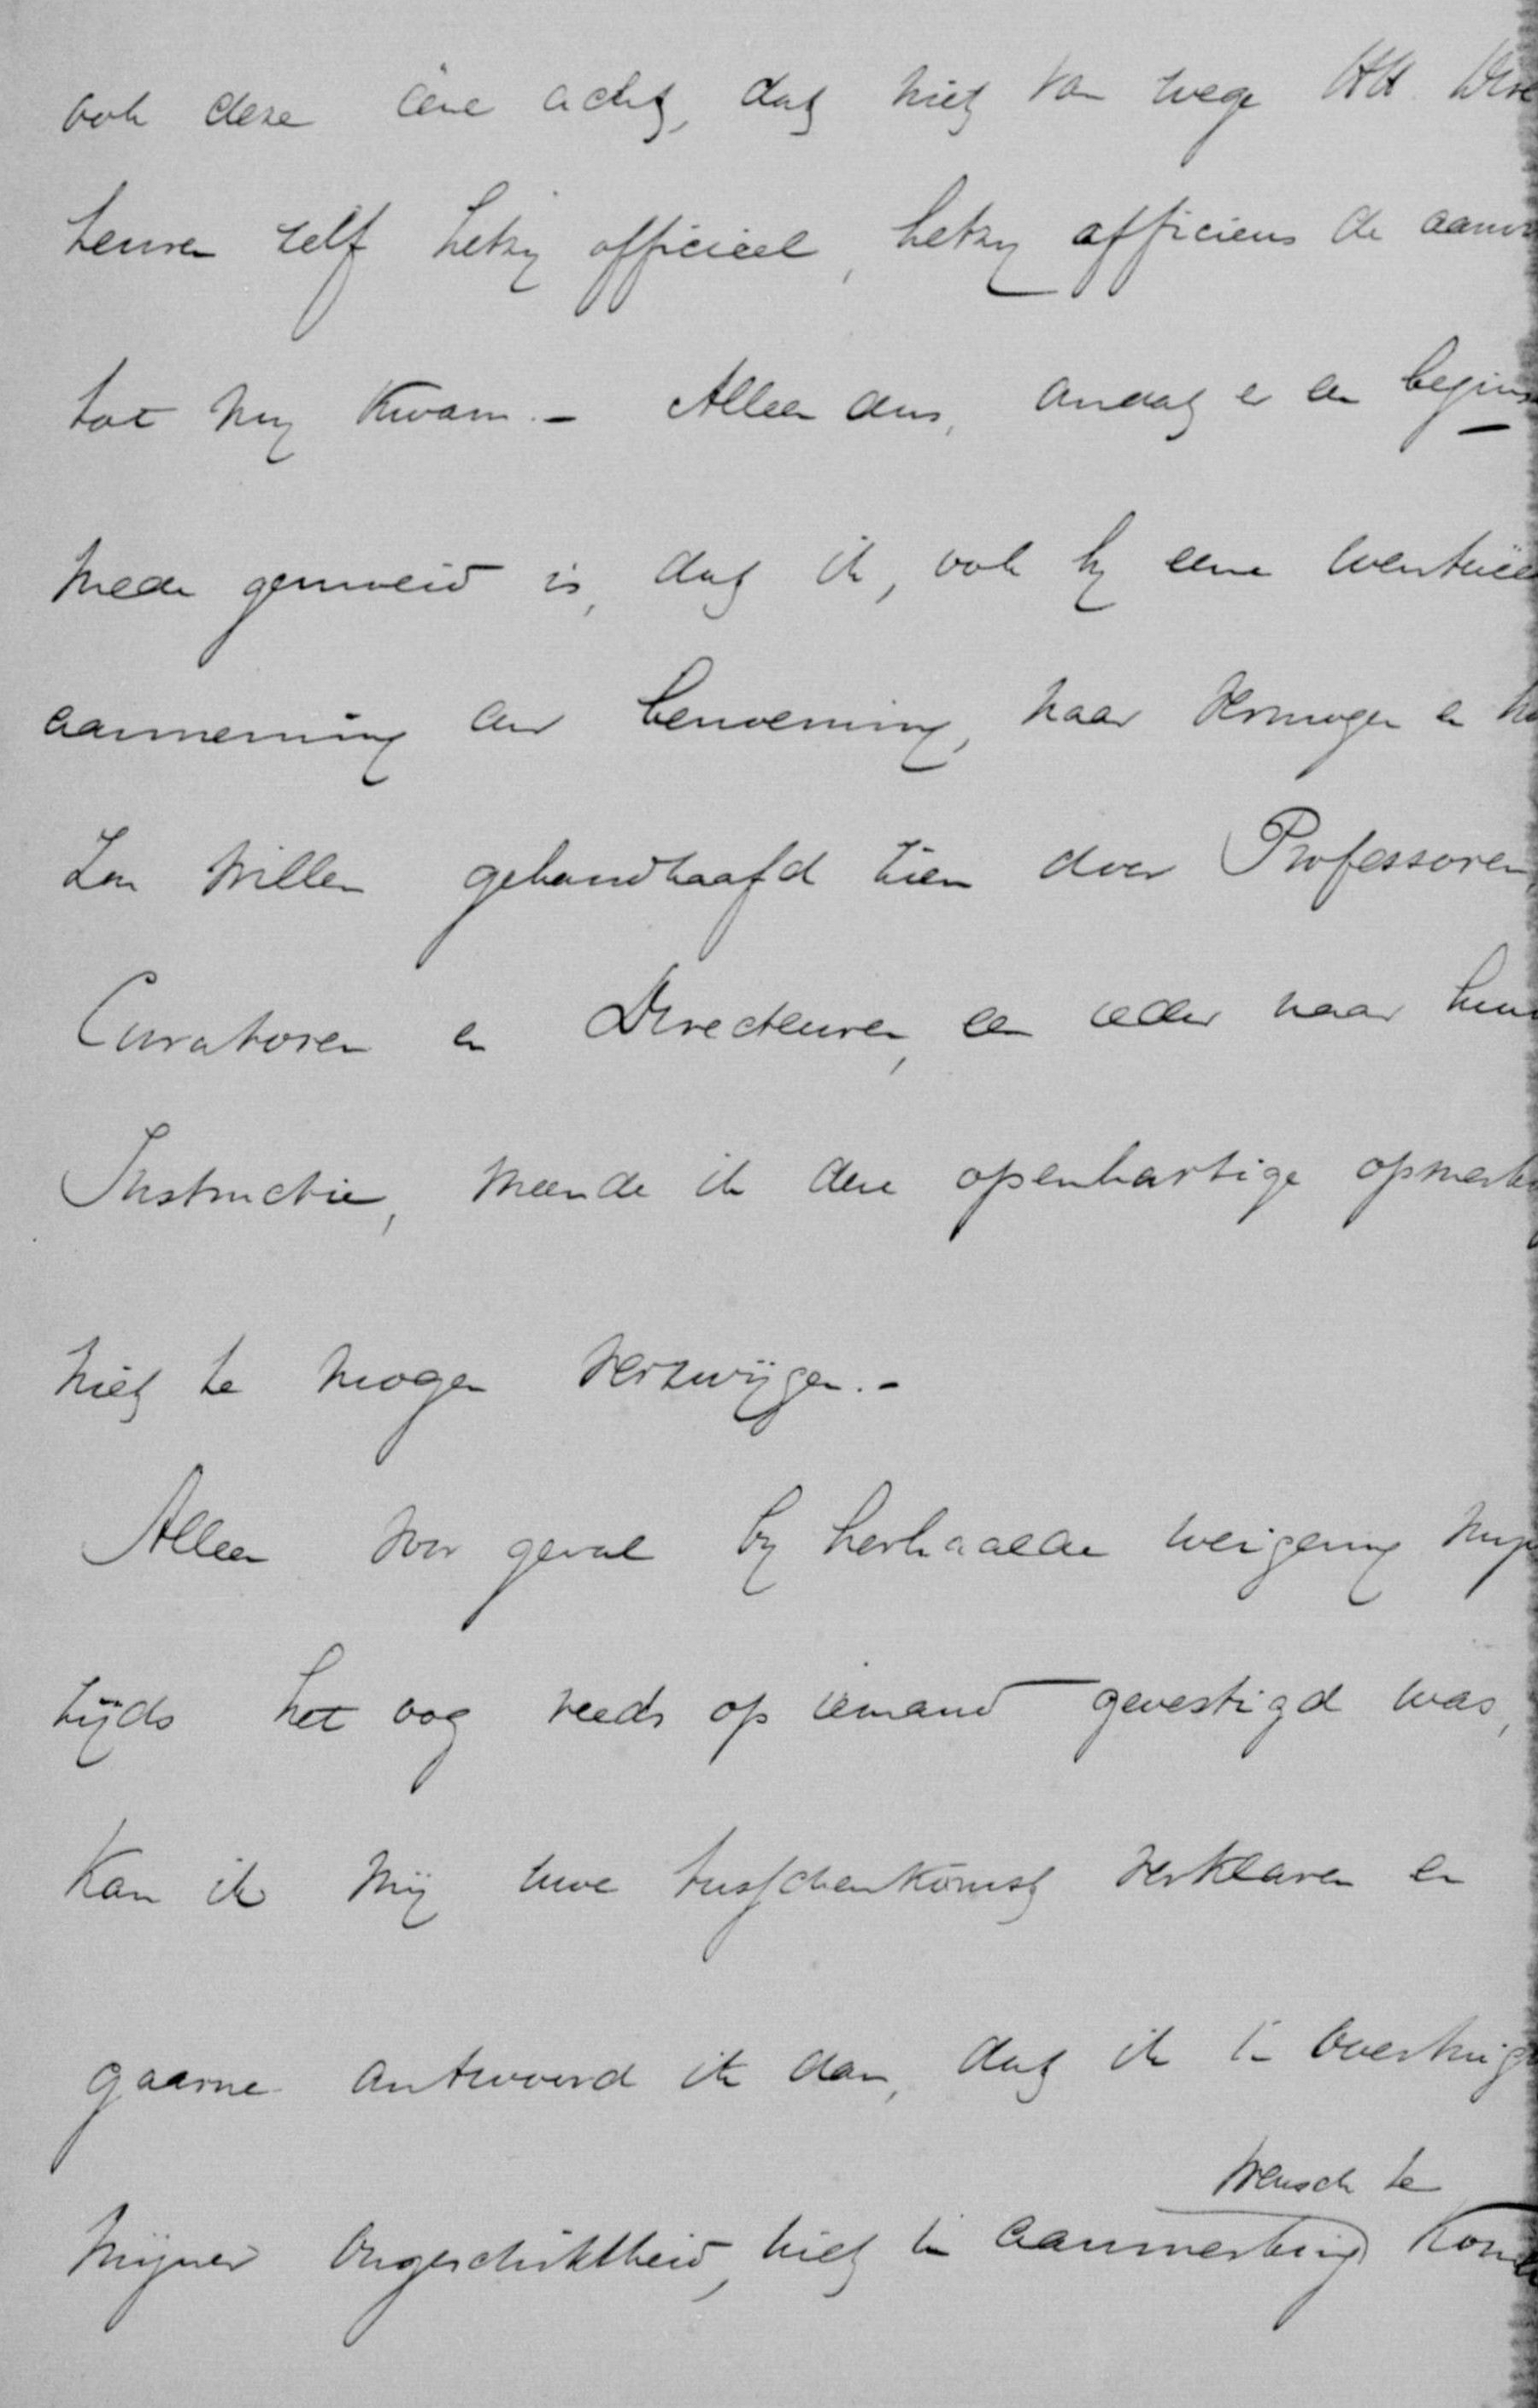 ook deze éene acht, dat niet van wege HH. Dire
teuren zelf hetzy officieel, hetzy officieus de aanvr
tot my kwam. - Alleen dus, omdat er een begins
mede gemoeid is, dat ik, ook by eene eventueel
aanneming der benoeming, naar vermogen en
zou willen gehandhaafd zien door Professoren,
Curatoren en Directeuren, een ieder naar hun
Instructie, meende ik deze openhartige opmerk
niet te mogen verzwijgen. -
Alleen voor geval by herhaalde weigering myn
tijds het oog reeds op iemand gevestigd was,
kan ik mij uwe tusschenkomst verklaren en
gaarne antwoord ik dan, dat ik in overtuig
wensch te
mijner ongeschiktheid, niet in aanmerking kome